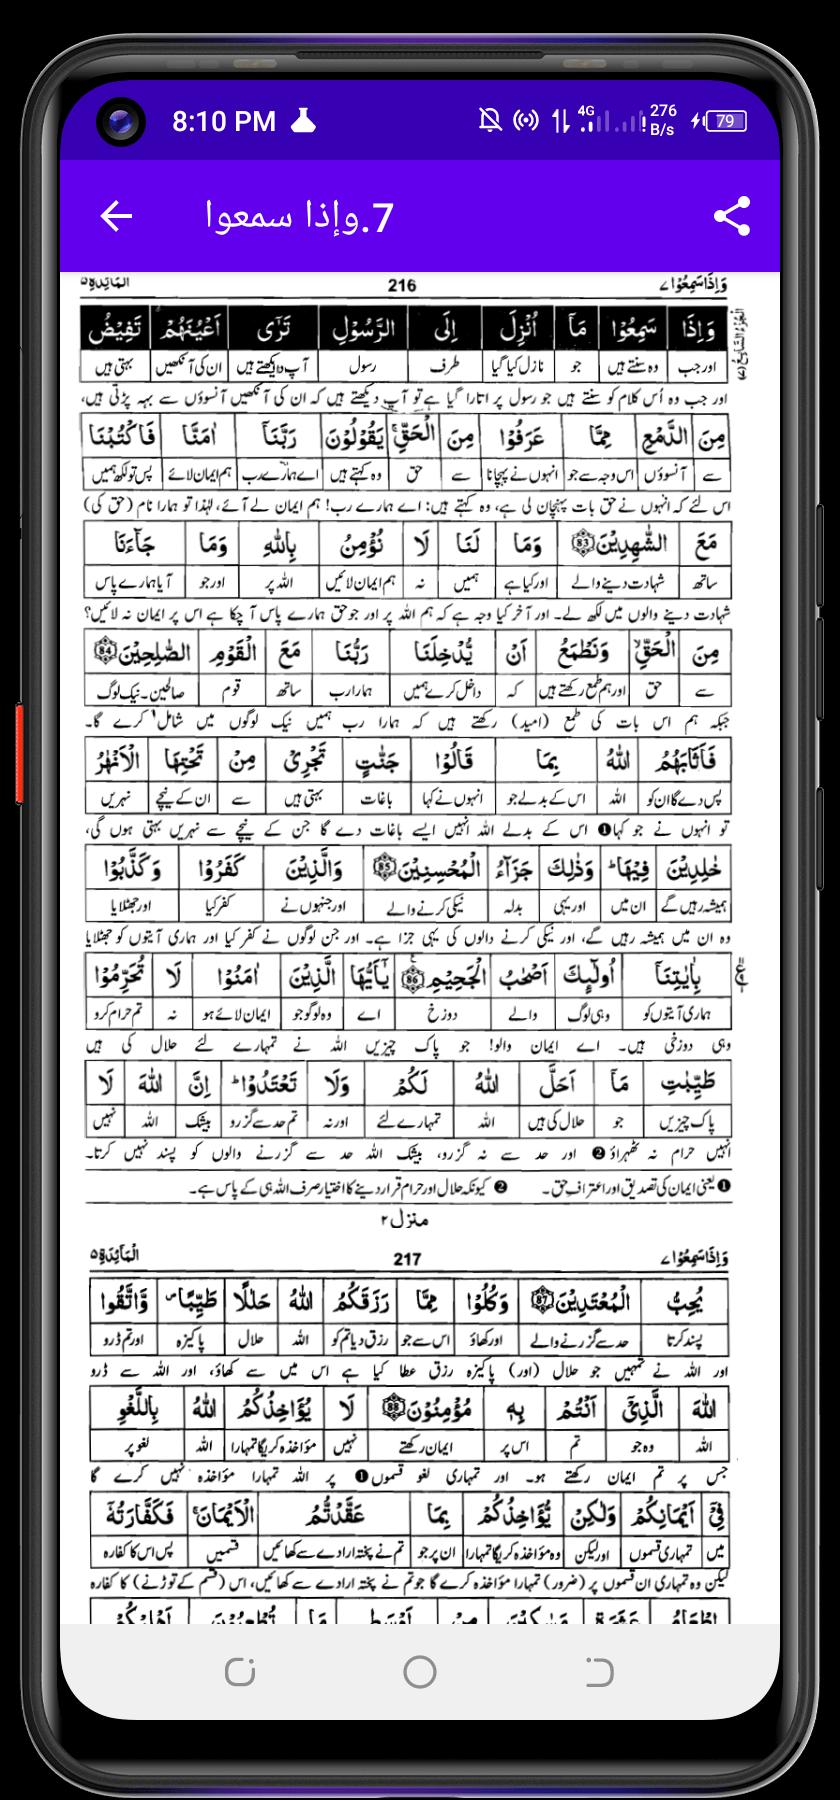 8:10 PM 4G 276 B/s 79
7.وإذا سمعوا
وَاِذَاسَمِعُوْا ۷ 216 المَآئِدَة ۵
وَاِذَا سَمِعُوْا مَآ اُنْزِلَ اِلَى الرَّسُوْلِ تَرٰٓى اَعْيُنَهُمْ تَفِيْضُ
اور جب وہ سنتے ہیں جو نازل کیا گیا طرف رسول آپ دیکھتے ہیں ان کی آنکھیں بہتی ہیں
اور جب وہ اُس کلام کو سنتے ہیں جو رسول پر اتارا گیا ہے تو آپ دیکھتے ہیں کہ ان کی آنکھیں آنسوؤں سے بہہ پڑتی ہیں،
مِنَ الدَّمْعِ مِمَّا عَرَفُوْا مِنَ الْحَقِّ ۚ يَقُوْلُوْنَ رَبَّنَآ اٰمَنَّا فَاكْتُبْنَا
سے آنسوؤں اس وجہ سے جو انہوں نے پہچانا سے حق وہ کہتے ہیں اے ہمارے رب ہم ایمان لائے پس تو لکھ ہمیں
اس لئے کہ انہوں نے حق بات پہچان لی ہے، وہ کہتے ہیں: اے ہمارے رب! ہم ایمان لے آئے، لہٰذا تو ہمارا نام (حق کی)
مَعَ الشّٰهِدِيْنَ 83 وَمَا لَنَا لَا نُؤْمِنُ بِاللّٰهِ وَمَا جَآءَنَا
ساتھ شہادت دینے والے اور کیا ہے ہمیں نہ ہم ایمان لائیں اللہ پر اور جو آیا ہمارے پاس
شہادت دینے والوں میں لکھ لے۔ اور آخر کیا وجہ ہے کہ ہم اللہ پر اور جو حق ہمارے پاس آ چکا ہے اس پر ایمان نہ لائیں؟
مِنَ الْحَقِّ ۙ وَنَطْمَعُ اَنْ يُّدْخِلَنَا رَبُّنَا مَعَ الْقَوْمِ الصّٰلِحِيْنَ 84
سے حق اور ہم طمع رکھتے ہیں کہ داخل کرے ہمیں ہمارا رب ساتھ قوم صالحین۔نیک لوگ
جبکہ ہم اس بات کی طمع (امید) رکھتے ہیں کہ ہمارا رب ہمیں نیک لوگوں میں شامل کرے گا۔
فَاَثَابَهُمُ اللّٰهُ بِمَا قَالُوْا جَنّٰتٍ تَجْرِيْ مِنْ تَحْتِهَا الْاَنْهٰرُ
پس دے گا ان کو اللہ اس کے بدلے جو انہوں نے کہا باغات بہتی ہیں سے ان کے نیچے نہریں
تو انہوں نے جو کہا❶ اس کے بدلے اللہ انہیں ایسے باغات دے گا جن کے نیچے سے نہریں بہتی ہوں گی،
خٰلِدِيْنَ فِيْهَا ؕ وَذٰلِكَ جَزَآءُ الْمُحْسِنِيْنَ 85 وَالَّذِيْنَ كَفَرُوْا وَكَذَّبُوْا
ہمیشہ رہیں گے ان میں اور یہی بدلہ نیکی کرنے والے اور جنہوں نے کفر کیا اور جھٹلایا
وہ ان میں ہمیشہ رہیں گے، اور نیکی کرنے والوں کی یہی جزا ہے۔ اور جن لوگوں نے کفر کیا اور ہماری آیتوں کو جھٹلایا
بِاٰيٰتِنَآ اُولٰٓئِكَ اَصْحٰبُ الْجَحِيْمِ 86 يٰٓاَيُّهَا الَّذِيْنَ اٰمَنُوْا لَا تُحَرِّمُوْا
ہماری آیتوں کو وہی لوگ والے دوزخ اے وہ لوگو جو ایمان لائے ہو نہ تم حرام کرو
وہی دوزخی ہیں۔ اے ایمان والو! جو پاک چیزیں اللہ نے تمہارے لئے حلال کی ہیں
طَيِّبٰتِ مَآ اَحَلَّ اللّٰهُ لَكُمْ وَلَا تَعْتَدُوْا ؕ اِنَّ اللّٰهَ لَا
پاک چیزیں جو حلال کی ہیں اللہ تمہارے لئے اور نہ تم حد سے گزرو بیشک اللہ نہیں
انہیں حرام نہ ٹھہراؤ❷ اور حد سے نہ گزرو، بیشک اللہ حد سے گزرنے والوں کو پسند نہیں کرتا۔
❶ یعنی ایمان کی تصدیق اور اعترافِ حق۔ ❷ کیونکہ حلال اور حرام قرار دینے کا اختیار صرف اللہ ہی کے پاس ہے۔
منزل ۲
وَاِذَاسَمِعُوْا ۷ 217 الْمَآئِدَة ۵
يُحِبُّ الْمُعْتَدِيْنَ 87 وَكُلُوْا مِمَّا رَزَقَكُمُ اللّٰهُ حَلٰلًا طَيِّبًا ۪ وَّاتَّقُوا
پسند کرتا حد سے گزرنے والے اور کھاؤ اس سے جو رزق دیا تم کو اللہ حلال پاکیزہ اور تم ڈرو
اور اللہ نے تمہیں جو حلال (اور) پاکیزہ رزق عطا کیا ہے اس میں سے کھاؤ، اور اللہ سے ڈرو
اللّٰهَ الَّذِيْٓ اَنْتُمْ بِهٖ مُؤْمِنُوْنَ 88 لَا يُؤَاخِذُكُمُ اللّٰهُ بِاللَّغْوِ
اللہ وہ جو تم اس پر ایمان رکھتے نہیں مؤاخذہ کرے گا تمہارا اللہ لغو پر
جس پر تم ایمان رکھتے ہو۔ اور تمہاری لغو قسموں❶ پر اللہ تمہارا مؤاخذہ نہیں کرے گا
فِيْٓ اَيْمَانِكُمْ وَلٰكِنْ يُّؤَاخِذُكُمْ بِمَا عَقَّدْتُّمُ الْاَيْمَانَ ۚ فَكَفَّارَتُهٗٓ
میں تمہاری قسموں اور لیکن وہ مؤاخذہ کرے گا تمہارا ان پر جو تم نے پختہ ارادے سے کھائیں قسمیں پس اس کا کفارہ
لیکن وہ تمہاری ان قسموں پر (ضرور) تمہارا مؤاخذہ کرے گا جو تم نے پختہ ارادے سے کھائیں، اس (قسم کے توڑنے) کا کفارہ
اِطْعَامُ عَشَرَةِ مَسٰكِيْنَ مِنْ اَوْسَطِ مَا تُطْعِمُوْنَ اَهْلِيْكُمْ